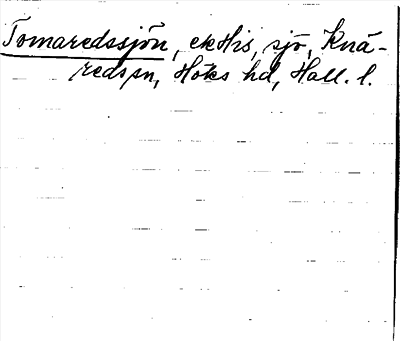 Tomaredssjön, ekHis, sjö, Knä-
redspn, Höks hd, Hall. l.